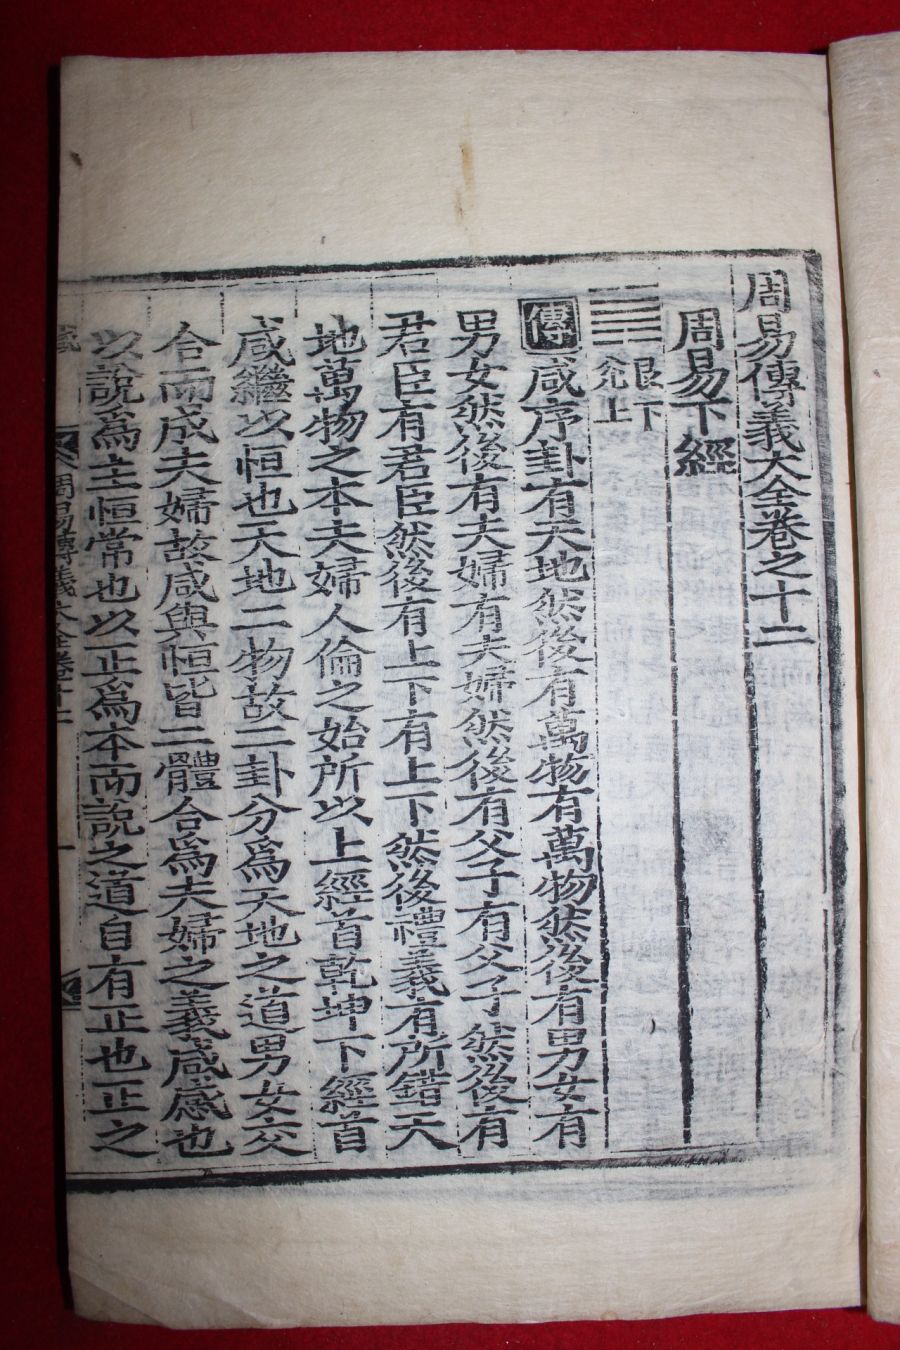 周易傳義大全卷之十二
周易下經
艮下
兊上
傳咸序卦有天地然後有萬物有萬物然後有男女有
男女然後有夫婦有夫婦然後有父子有父子然後有
君臣有君臣然後有上下有上下然後禮義有所錯天
地萬物之本夫婦人倫之始所以上經首乾坤下經首
咸繼以恒也天地二物故二卦分爲天地之道男女交
合而成夫婦故咸與恒皆二體合爲夫婦之義咸感也
以說爲主恒常也以正爲本而說之道自有正也正之
周易傳義大全卷十二